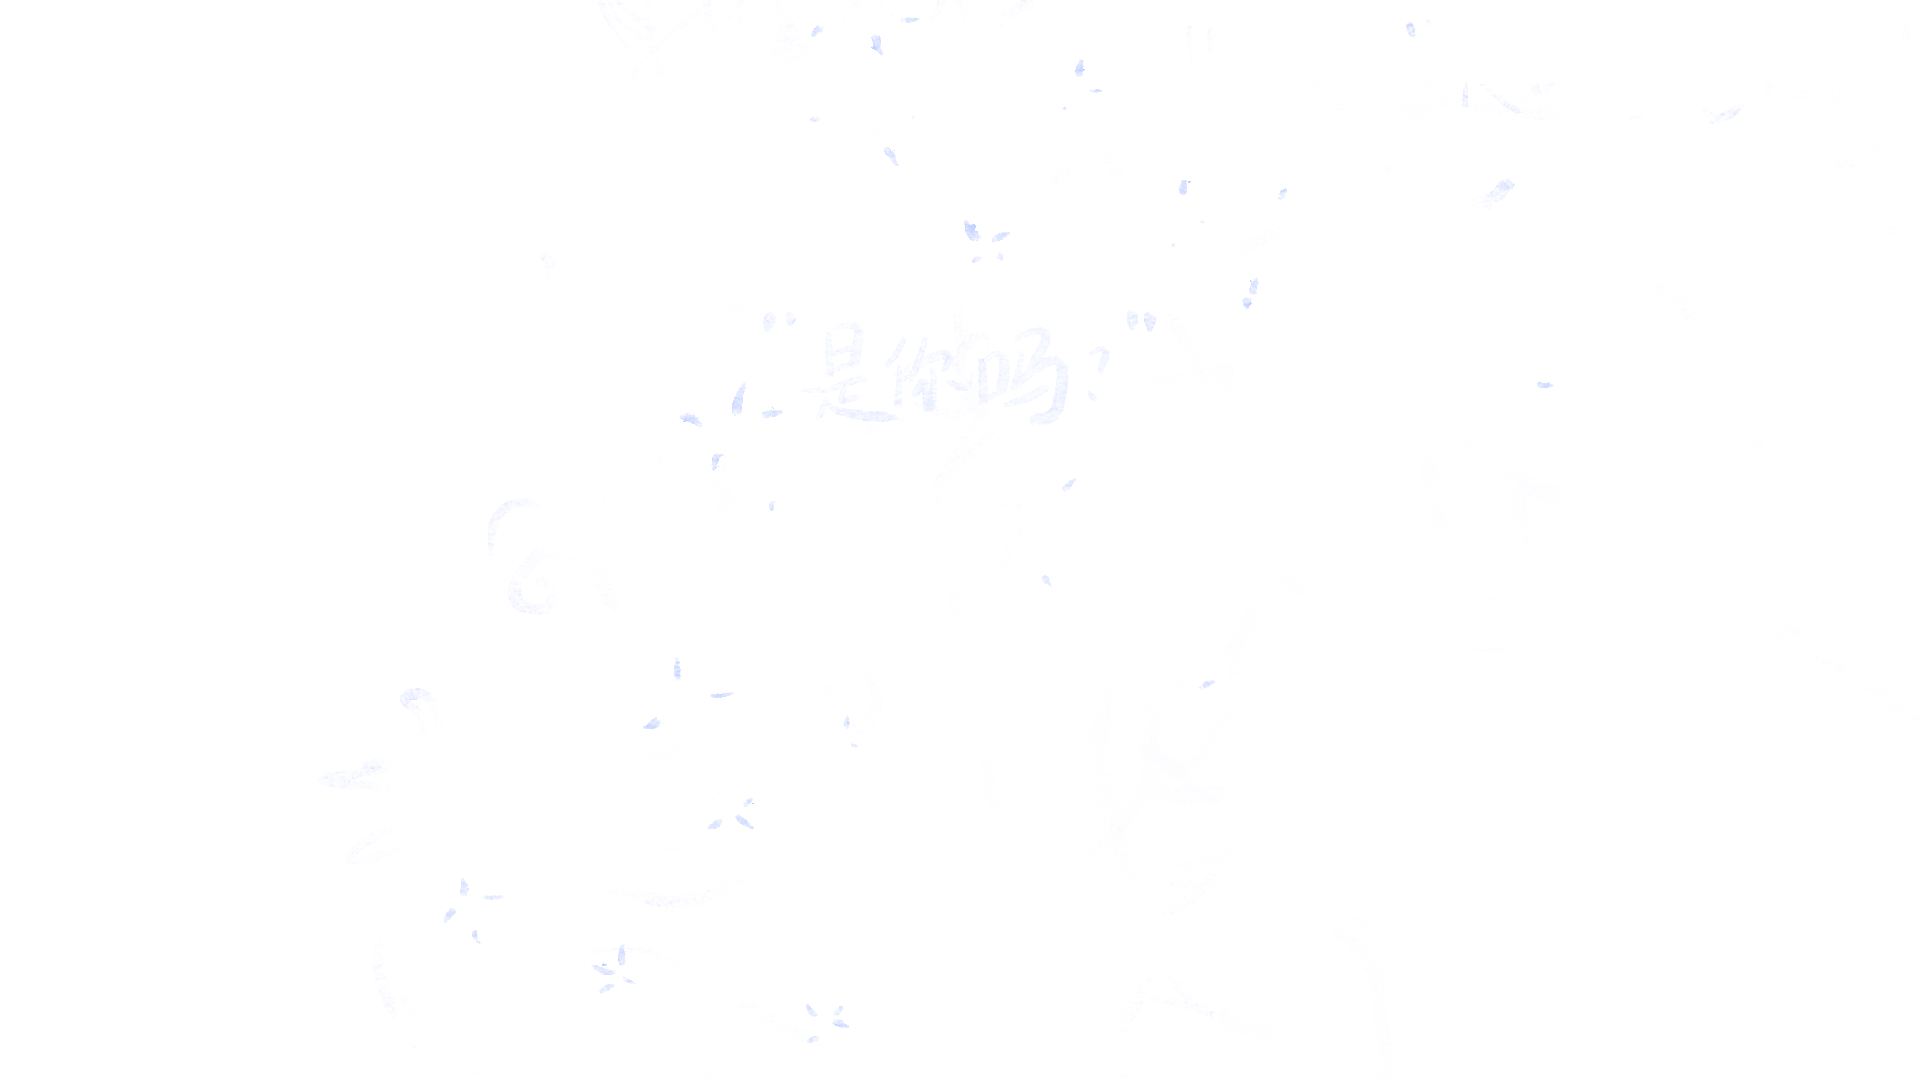 "是你吗?"